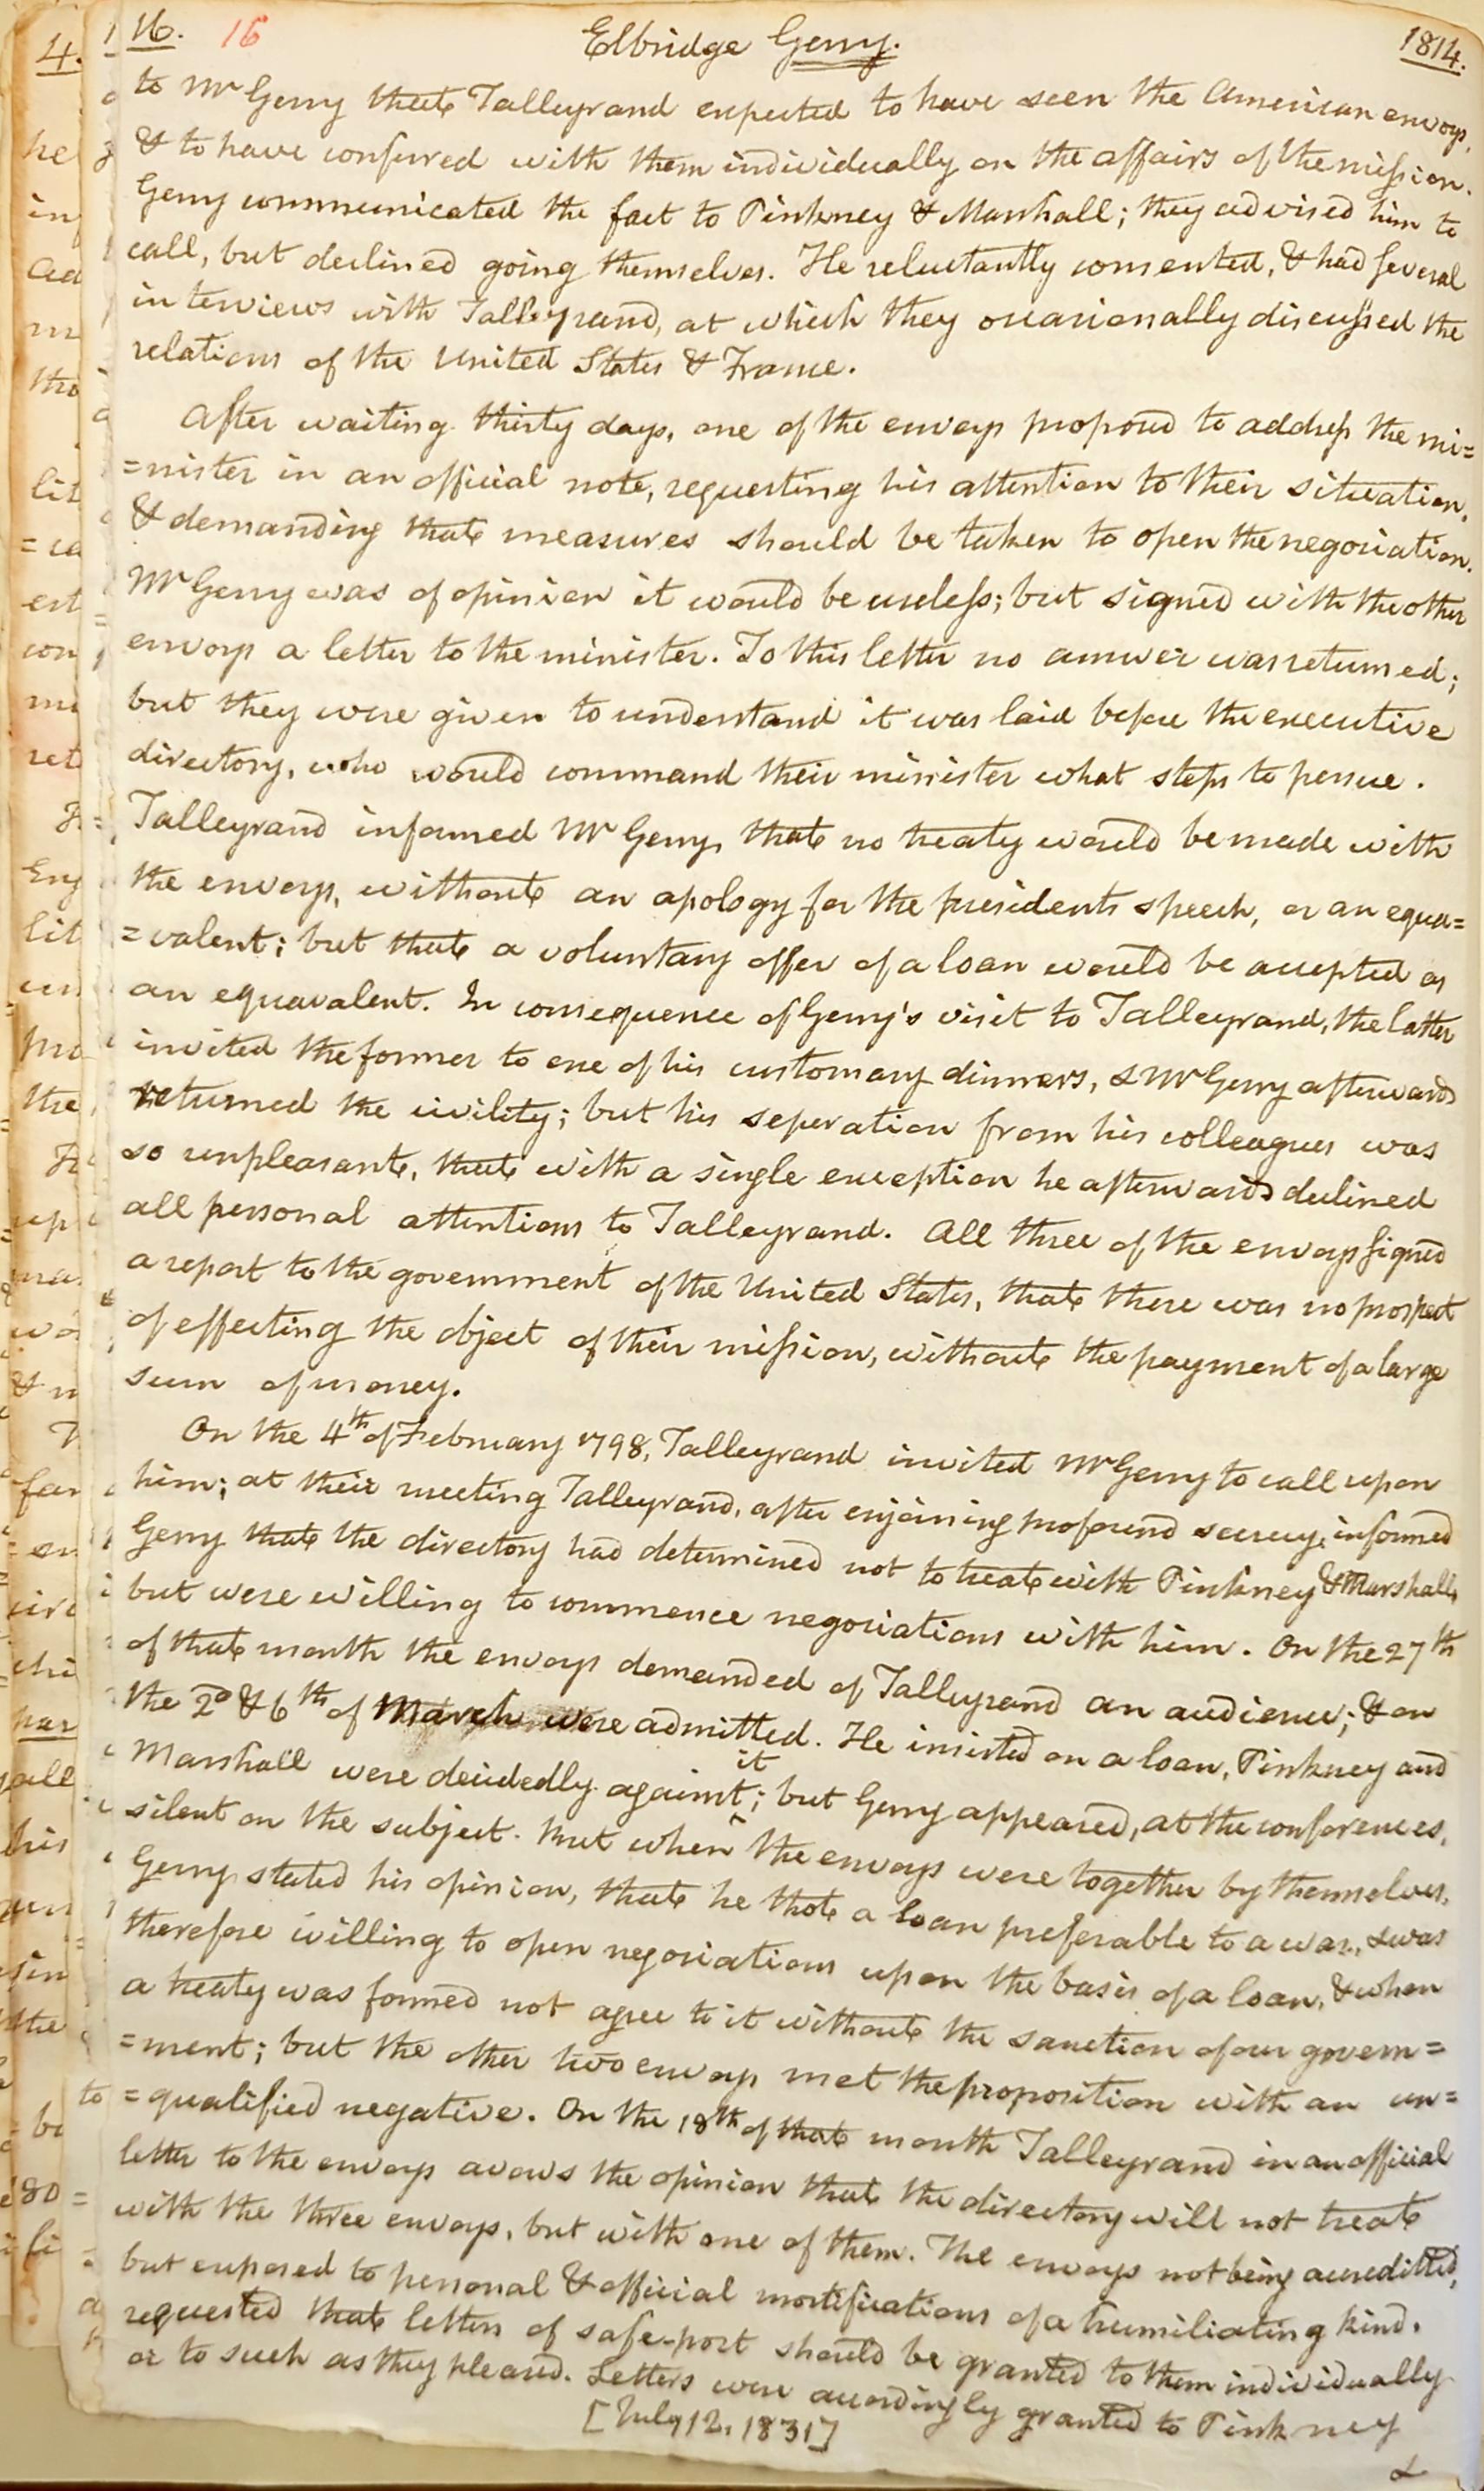 16. 16 Elbridge Gerry. 1814.
to Mr Gerry that Talleyrand expected to have seen the American envoys,
& to have confured with them individually on the affairs of the mission.
Gerry communicated the fact to Pinkney & Marshall; they advised him to
call, but declined going themselves. He reluctantly consented, & had several
interviews with Talleyrand, at which they occasionally discussed the
relations of the United States & France.
After waiting thirty days, one of the envoys proposed to address the mi=
=nister in an official note, requesting his attention to their situation,
& demanding that measures should be taken to open the negociation.
Mr Gerry was of opinion it would be useless; but signed with the other
envoys a letter to the minister. To this letter no answer was returned;
but they were given to understand it was laid before the executive
directory, who would command their minister what steps to persue.
Talleyrand informed Mr Gerry, that no treaty would be made with
the envoys, without an apology for the presidents speech, or an equa=
=valent; but that a voluntary offer of a loan would be accepted as
an equavalent. In consequence of Gerry's visit to Talleyrand, the latter
invited the former to one of his customary dinners, & Mr Gerry afterwards
returned the civility; but his seperation from his colleagues was
so unpleasant, that with a single exception he afterwards declined
all personal attentions to Talleyrand. All three of the envoys signed
a report to the government of the United States, that there was no prospect
of effecting the object of their mission, without the payment of a large
sum of money.
On the 4th of February 1798, Talleyrand invited Mr Gerry to call upon
him; at their meeting Talleyrand, after enjoining profound secrecy, informed
Gerry that the directory had determined not to treat with Pinkney & Marshall,
but were willing to commence negociations with him. On the 27th
of that month the envoys demanded of Talleyrand an audience; & on
the 2d & 6th of March were admitted. He insisted on a loan, Pinkney and
Marshall were decidedly against it; but Gerry appeared, at the conferences,
silent on the subject. But when the envoys were together by themselves,
Gerry stated his opinion, that he thot a loan preferable to a war, & was
therefore willing to open negociations upon the basis of a loan, & when
a treaty was formed not agree to it without the sanction of our govern=
=ment; but the other two envoys met the proposition with an un=
=qualified negative. On the 18th of that month Talleyrand in an official
letter to the envoys avows the opinion that the directory will not treat
with the three envoys, but with one of them. The envoys not being accreditted,
but exposed to personal & official mortifications of a humiliating kind,
requested that letters of safe-port should be granted to them individually
or to such as they pleased. Letters were accordingly granted to Pinkney
[July 12, 1831]
&